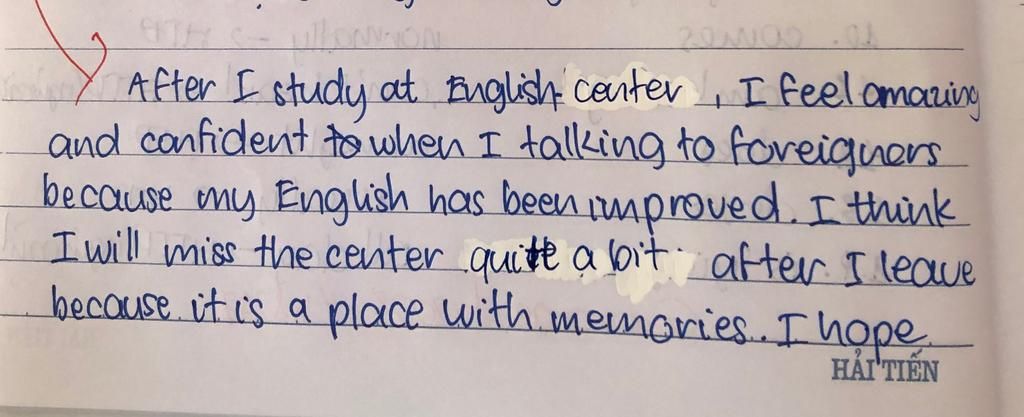 After I study at English center, I feel amazing
and confident to when I talking to foreigners
because my English has been improved. I think
I will miss the center quite a bit after I leave
because it is a place with memories. I hope
HẢI TIẾN